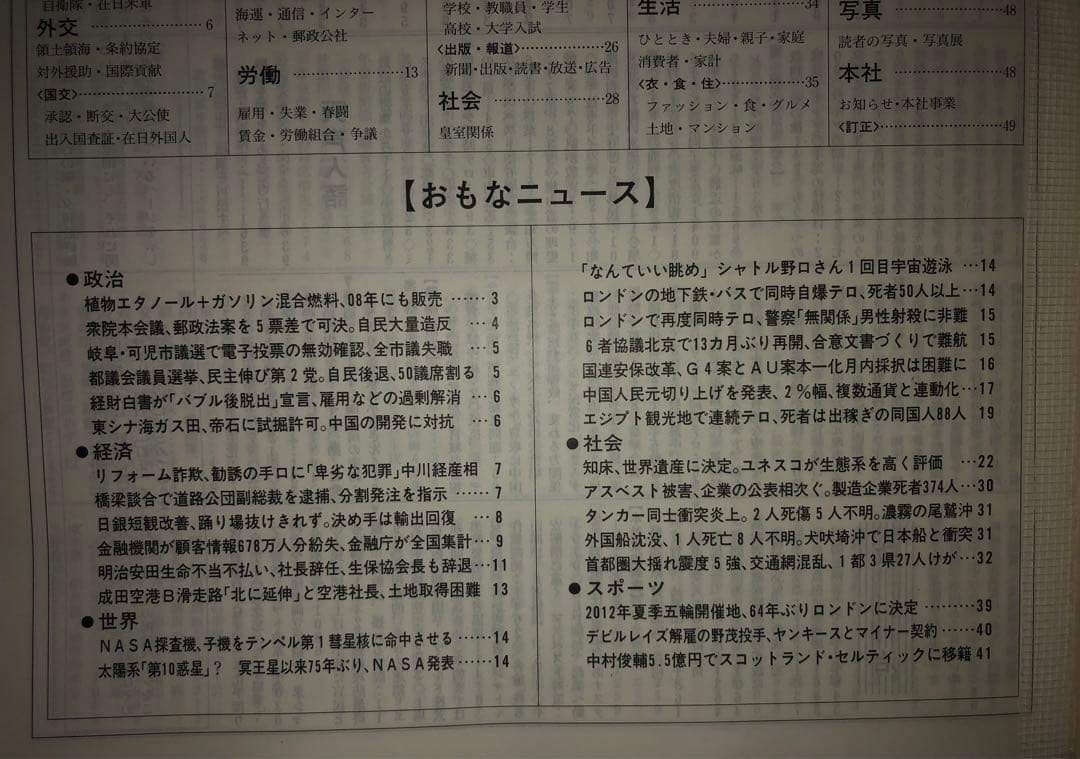 自衛隊・在日米軍
外交 ……………… 6
領土領海・条約協定
対外援助・国際貢献
〈国交〉……………… 7
承認・断交・大公使
出入国査証・在日外国人
海運・通信・インター
ネット・郵政公社
労働 ……………… 13
雇用・失業・春闘
賃金・労働組合・争議
学校・教職員・学生
高校・大学入試
〈出版・報道〉……………… 26
新聞・出版・読書・放送・広告
社会 ……………… 28
皇室関係
生活 ……………… 34
ひととき・夫婦・親子・家庭
消費者・家計
〈衣・食・住〉……………… 35
ファッション・食・グルメ
土地・マンション
写真 ……………… 48
読者の写真・写真展
本社 ……………… 48
お知らせ・本社事業
〈訂正〉……………… 49
【おもなニュース】
●政治
植物エタノール＋ガソリン混合燃料、08年にも販売 …… 3
衆院本会議、郵政法案を5票差で可決。自民大量造反 … 4
岐阜・可児市議選で電子投票の無効確認、全市議失職 … 5
都議会議員選挙、民主伸び第2党。自民後退、50議席割る 5
経財白書が「バブル後脱出」宣言、雇用などの過剰解消 … 6
東シナ海ガス田、帝石に試掘許可。中国の開発に対抗 … 6
●経済
リフォーム詐欺、勧誘の手口に「卑劣な犯罪」中川経産相 7
橋梁談合で道路公団副総裁を逮捕、分割発注を指示 …… 7
日銀短観改善、踊り場抜けきれず。決め手は輸出回復 … 8
金融機関が顧客情報678万人分紛失、金融庁が全国集計… 9
明治安田生命不当不払い、社長辞任、生保協会長も辞退…11
成田空港B滑走路「北に延伸」と空港社長、土地取得困難 13
●世界
NASA探査機、子機をテンペル第1彗星核に命中させる ……14
太陽系「第10惑星」？　冥王星以来75年ぶり、NASA発表……14
「なんていい眺め」シャトル野口さん1回目宇宙遊泳 …14
ロンドンの地下鉄・バスで同時自爆テロ、死者50人以上…14
ロンドンで再度同時テロ、警察「無関係」男性射殺に非難 15
6者協議北京で13カ月ぶり再開、合意文書づくりで難航 15
国連安保改革、G4案とAU案本一化月内採択は困難に 16
中国人民元切り上げを発表、2％幅、複数通貨と連動化…17
エジプト観光地で連続テロ、死者は出稼ぎの同国人88人 19
●社会
知床、世界遺産に決定。ユネスコが生態系を高く評価 …22
アスベスト被害、企業の公表相次ぐ。製造企業死者374人…30
タンカー同士衝突炎上。2人死傷5人不明。濃霧の尾鷲沖 31
外国船沈没、1人死亡8人不明。犬吠埼沖で日本船と衝突 31
首都圏大揺れ震度5強、交通網混乱、1都3県27人けが…32
●スポーツ
2012年夏季五輪開催地、64年ぶりロンドンに決定 ………39
デビルレイズ解雇の野茂投手、ヤンキースとマイナー契約……40
中村俊輔5.5億円でスコットランド・セルティックに移籍 41